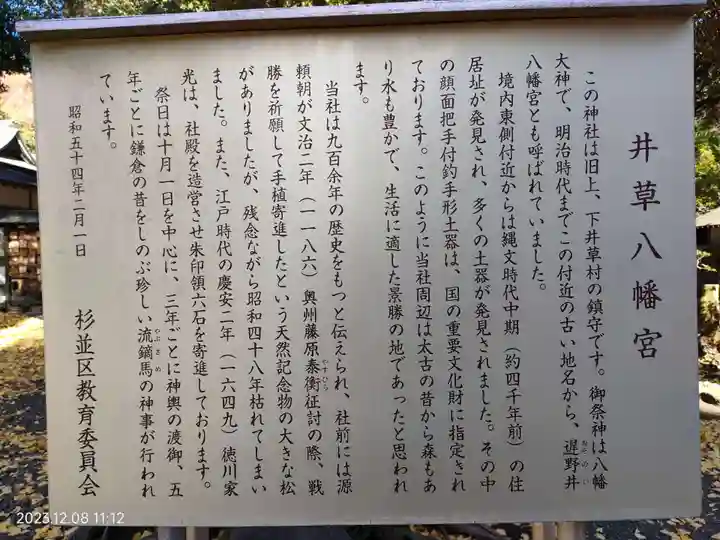 井草八幡宮
この神社は旧上、下井草村の鎮守です。御祭神は八幡
大神で、明治時代までこの付近の古い地名から、遅野井
おそのい
八幡宮とも呼ばれていました。
境内東側付近からは縄文時代中期（約四千年前）の住
居址が発見され、多くの土器が発見されました。その中
の顔面把手付釣手形土器は、国の重要文化財に指定され
ております。このように当社周辺は太古の昔から森もあ
り水も豊かで、生活に適した景勝の地であったと思われ
ます。
当社は九百余年の歴史をもつと伝えられ、社前には源
頼朝が文治二年（一一八六）奥州藤原泰衡征討の際、戦
やすひら
勝を祈願して手植寄進したという天然記念物の大きな松
がありましたが、残念ながら昭和四十八年枯れてしまい
ました。また、江戸時代の慶安二年（一六四九）徳川家
光は、社殿を造営させ朱印領六石を寄進しております。
祭日は十月一日を中心に、三年ごとに神輿の渡御、五
年ごとに鎌倉の昔をしのぶ珍しい流鏑馬の神事が行われ
やぶさめ
ています。
昭和五十四年二月一日
杉並区教育委員会
2023.12.08 11:12